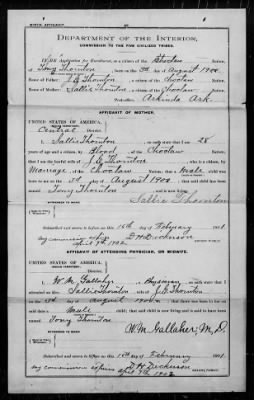 BIRTH AFFIDAVIT.
DEPARTMENT OF THE INTERIOR,
COMMISSION TO THE FIVE CIVILIZED TRIBES.
Application for Enrollment, as a citizen of the Choctaw Nation,
of Tony Thornton, born on the 3rd day of August 1900
Name of Father: J G Thornton a citizen of the Choctaw Nation.
Name of Mother: Sallie Thornton a citizen of the Choctaw Nation.
Ark.
AFFIDAVIT OF MOTHER.
UNITED STATES OF AMERICA,
INDIAN TERRITORY,
Central District.
I, Sallie Thornton, on oath state that I am 28
years of age and a citizen, by Blood, of the Choctaw Nation;
that I am the lawful wife of J G Thornton, who is a citizen, by
Marriage, of the Choctaw Nation; that a Male child was
born to me on 3rd day of August 1900, that said child has been
named Tony Thornton, and is now living.
Sallie Thornton
WITNESSES TO MARK:
Subscribed and sworn to before me this 16th day of February 1901.
My commission expires D H Dickinson
April 9th 1902 NOTARY PUBLIC.
AFFIDAVIT OF ATTENDING PHYSICIAN, OR MIDWIFE.
UNITED STATES OF AMERICA,
INDIAN TERRITORY,
District.
I, W M Gallaher, a Physician, on oath state that I
attended on Mrs. Sallie Thornton, wife of J G Thornton on the
3rd day of August 1900, that there was born to her on
said date a Male child; that said child is now living and is said to have been
named Tony Thornton
W. M. Gallaher, M.D.
WITNESSES TO MARK:
Subscribed and sworn to before me this 16th day of February 1901.
My commission expires D H Dickinson
April 9th 1902 NOTARY PUBLIC.